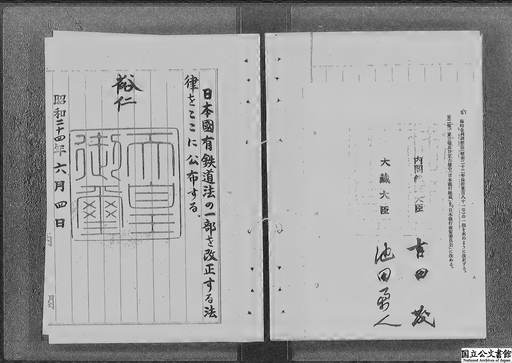 日本國有鉄道法の一部を改正する法
律をここに公布する。
裕仁
天皇
御璽
昭和二十四年六月四日
内閣総理大臣
吉田茂
大藏大臣
池田勇人
国立公文書館
National Archives of Japan